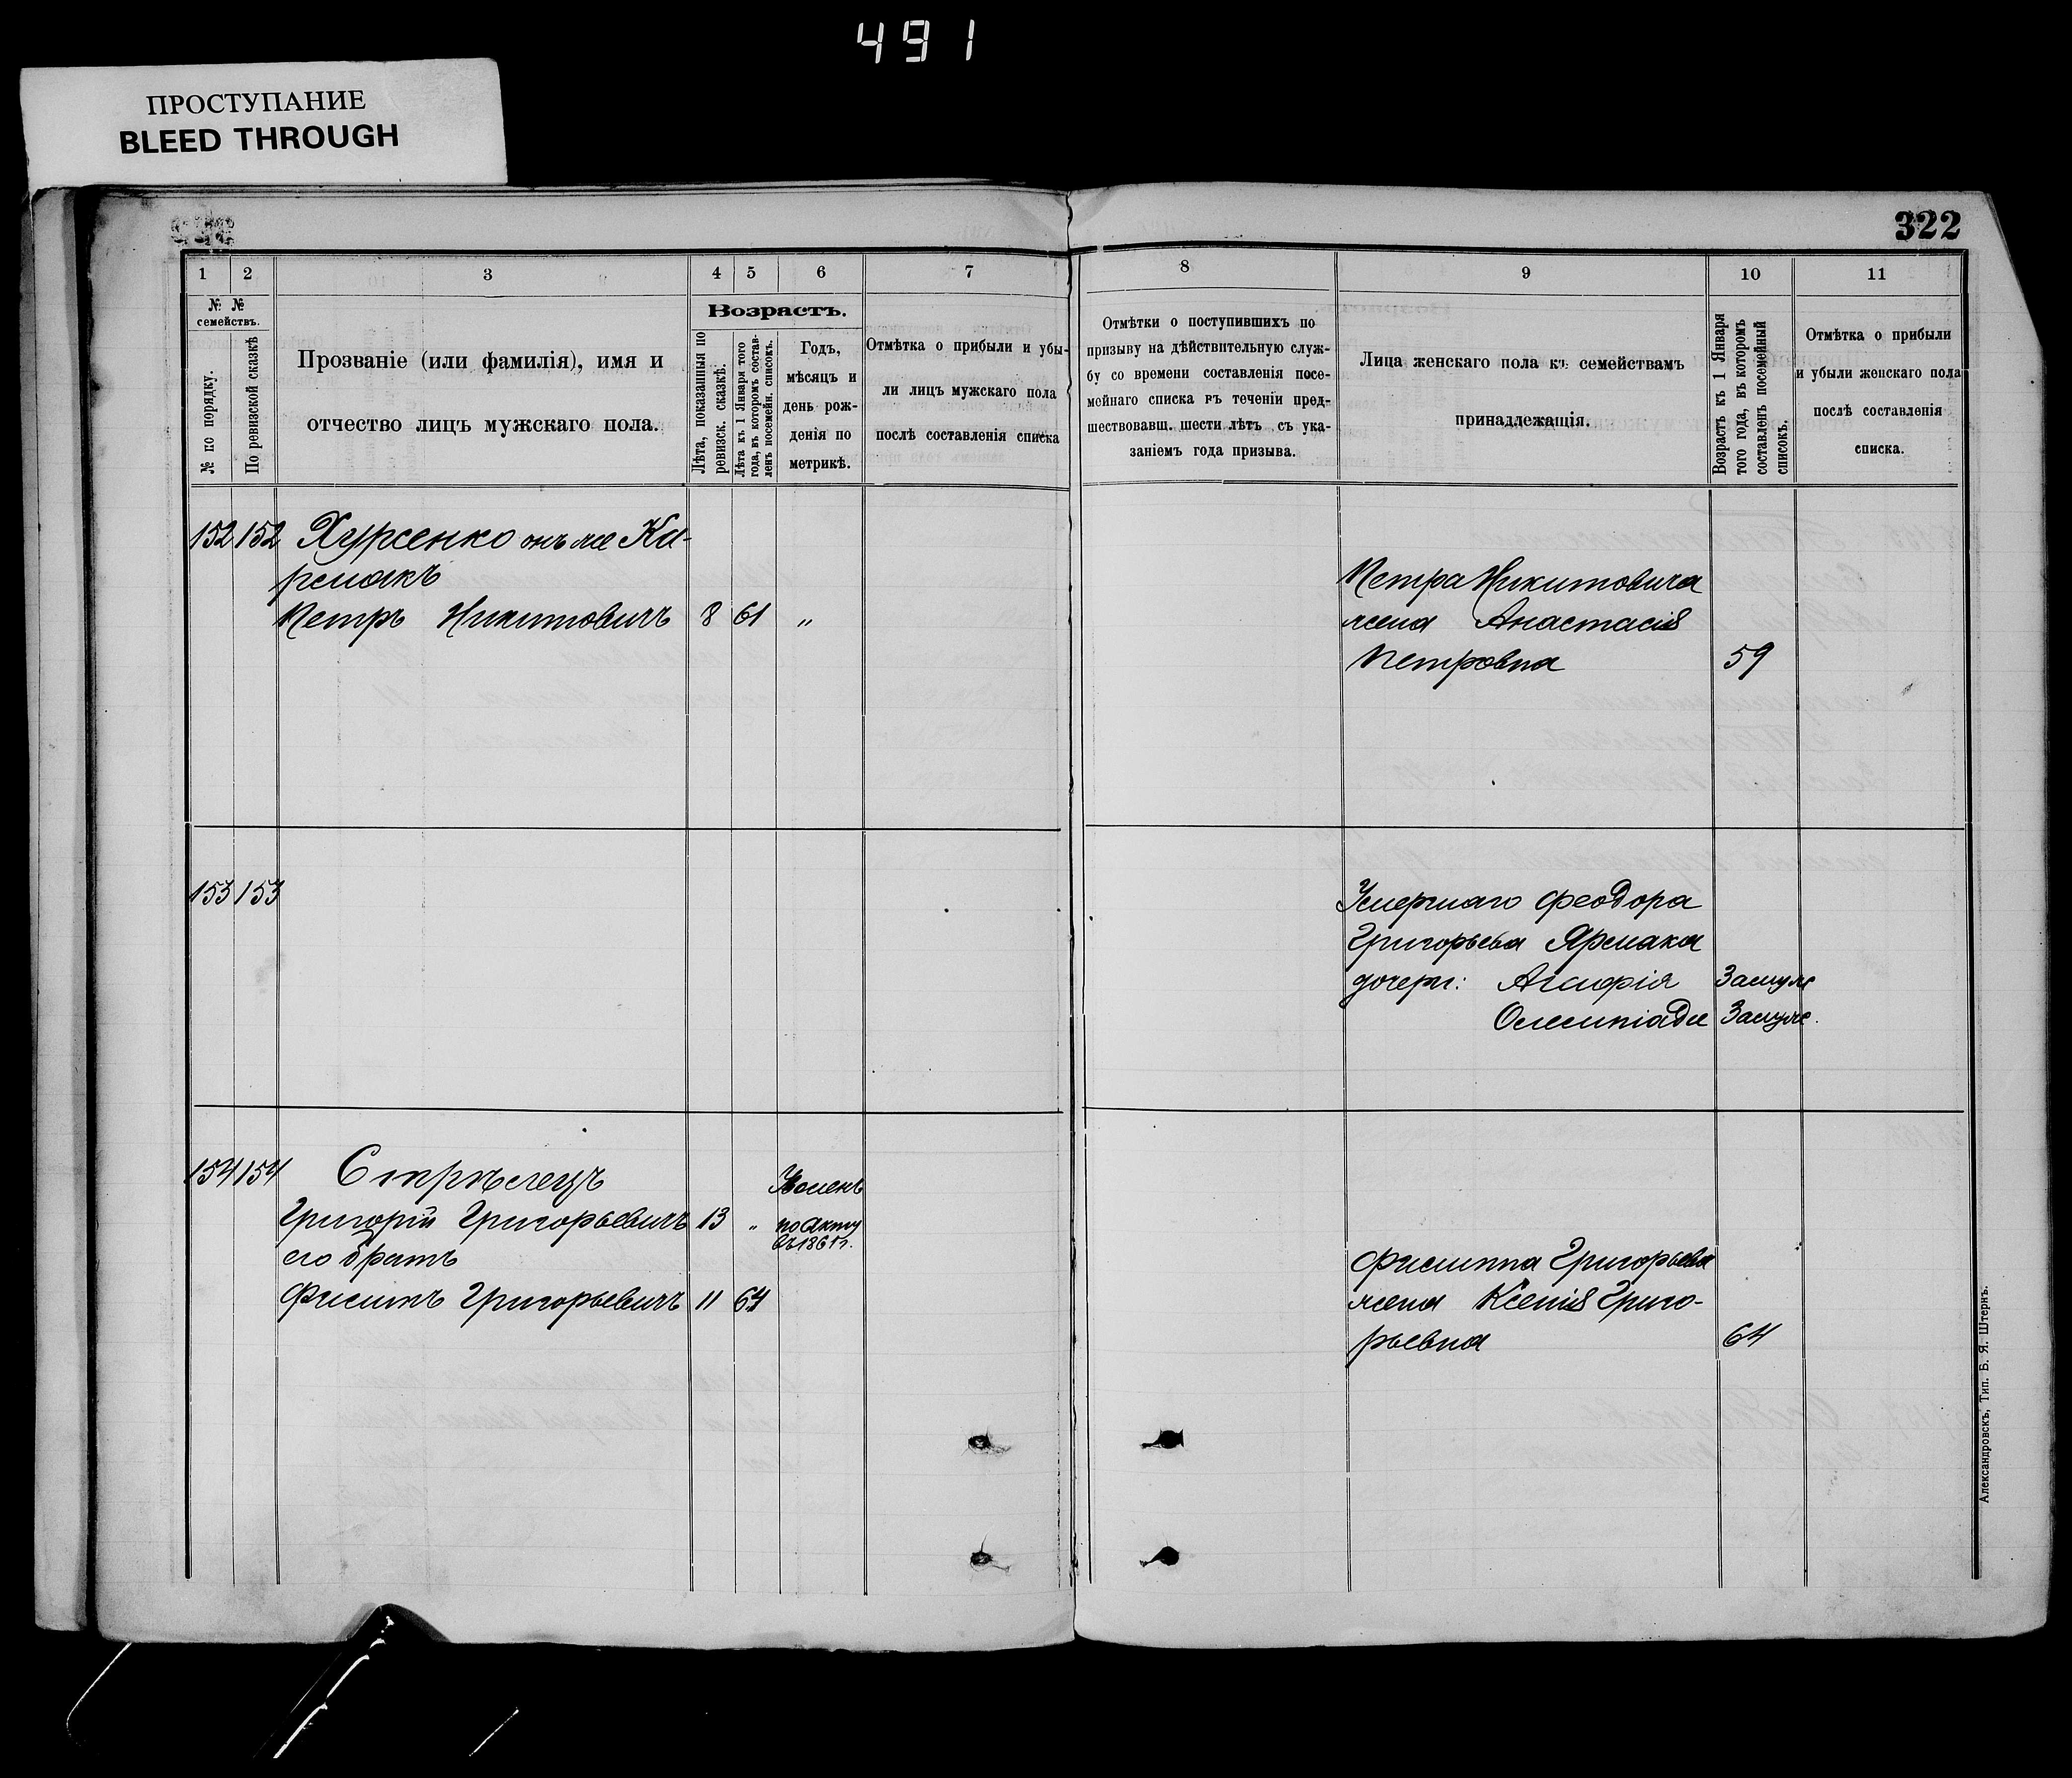 491
ПРОСТУПАНИЕ
BLEED THROUGH
322
1 2 3 4 5 6 7 8 9 10 11
№ № семействъ.
№ по порядку.
По ревизской сказкѣ
Прозваніе (или фамилія), имя и
отчество лицъ мужскаго пола.
Возрастъ.
Лѣта, показанныя по
ревизск. сказкѣ.
Лѣта къ 1 Января того
года, въ которомъ состав-
ленъ посемейн. списокъ.
Годъ,
мѣсяцъ и
день рож-
денія по
метрикѣ.
Отмѣтка о прибыли и убы-
ли лицъ мужскаго пола
послѣ составленія списка
Отмѣтки о поступившихъ по
призыву на дѣйствительную служ-
бу со времени составленія посе-
мейнаго списка въ теченіи пред-
шествовавщ. шести лѣтъ съ ука-
заніемъ года призыва.
Лица женскаго пола къ семействамъ
принадлежащія.
Возрастъ къ 1 Января
того года, въ которомъ
составленъ посемейный
списокъ.
Отмѣтка о прибыли
и убыли женскаго пола
послѣ составленія
списка.
152 152 онъ же
Петръ Никитовичъ 8 61 "
Петра Никитовича
жена Анастасія
Петровна 59
153 153
Умершаго Феодора
Григорьева Ярмака
дочери: Агафія Замуж
Олимпіада Замуж.
154 154 Стрѣлецъ
Григорій Григорьевичъ 13 "
по акту
въ 1861 г.
его братъ
Филипъ Григорьевичъ 11 64
Филиппа Григорьева
жена Ксенія Григо-
рьевна 64
Александровскъ, Тип. Б. Я. Штернъ.